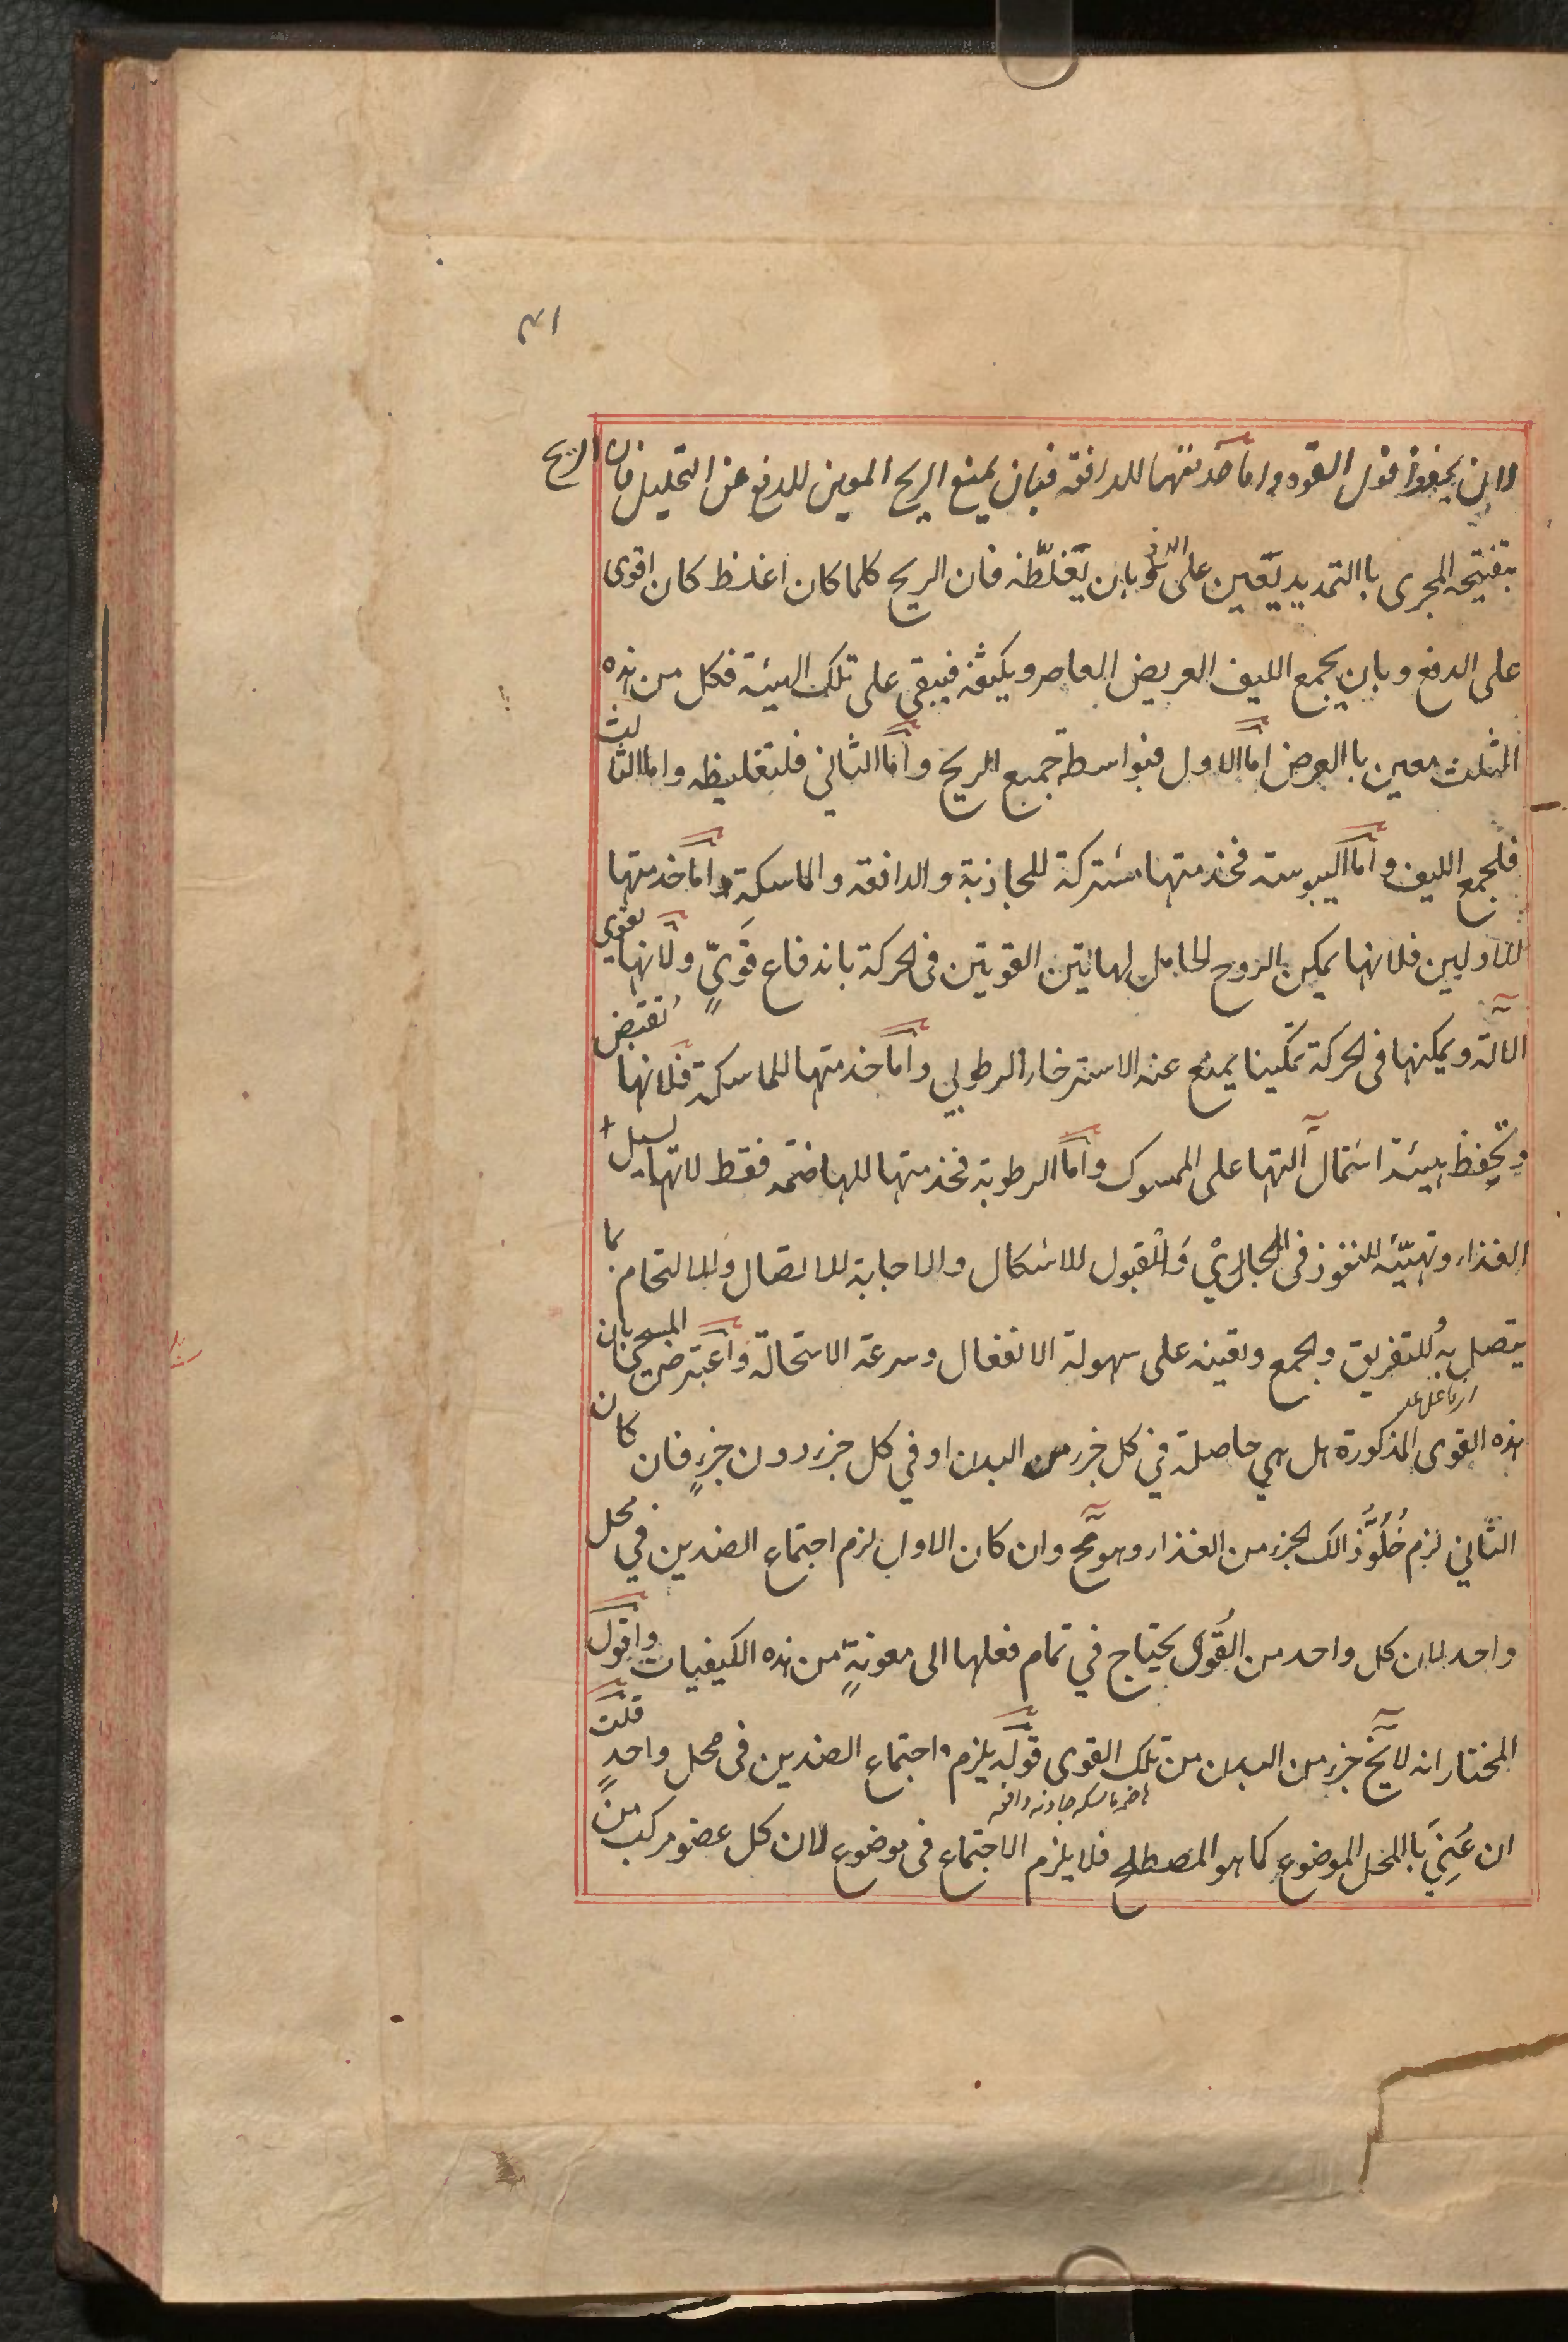 ١٣١
يحفظ قول القوة واما خدمتها للدافعة فبان يمنع الريح المعين للدفع عن التحليل فان الريح
بتفتيحه المجرى باالتمديد يعين على الدفع وبان يغلظه فان الريح كلما كان اغلظ كان اقوى
على الدفع وبان يجمع الليف العريض العاصر ويكثفه فيبقى على تلك الهيئة فكل من هذه
الثلث معين باالعرض اما الاول فبواسطة جميع الريح واما الثاني فلتغليظه واما الثالث
فلجمع الليف واما اليبوسة فخدمتها مشتركة للجاذبة والدافعة والماسكة واما خدمتها
للاوليين فلانها يمكن الروح الحامل لهاتين القوتين فى الحركة باندفاع قوىّ ولانها يقوى
الآلة ويمكنها فى الحركة تمكينا يمنع عنه الاسترخاء الرطوبي واما خدمتها للماسكة فلانها تقبض
وتحفظ هيئة اشتمال آلتها على الممسوك واما الرطوبة فخدمتها للهاضمة فقط لانها يسيل
الغذاء وتهيّئه للنفوذ فى المجاريْ والقبول للاشكال والاجابة للاتصال وللالتحام كما
يتصل به للتفريق والجمع وتعينه على سهولة الانفعال وسرعة الاستحالة واعترض المسيحي بان
هذه القوى المذكورة هل هي حاصلة في كل جزء من البدن او في كل جزء دون جزءٍ فان كان
الثاني لزم خُلُوُّ ذالك الجزء من الغذاء وهو مح وان كان الاول لزم اجتماع الضدين في محل
واحد لان كل واحد من القُوى يحتاج في تمام فعلها الى معونةٍ من هذه الكيفيات واقول
المختار انه لا يخ جزء من البدن من تلك القوى قوله يلزم اجتماع الضدين فى محل واحدٍ قلت
هاضمه ماسكه جاذبه دافعه
ان عُنِيَ باالمحل الموضوع كما هو المصطلح فلا يلزم الاجتماع فى موضوع لان كل عضو مركب من